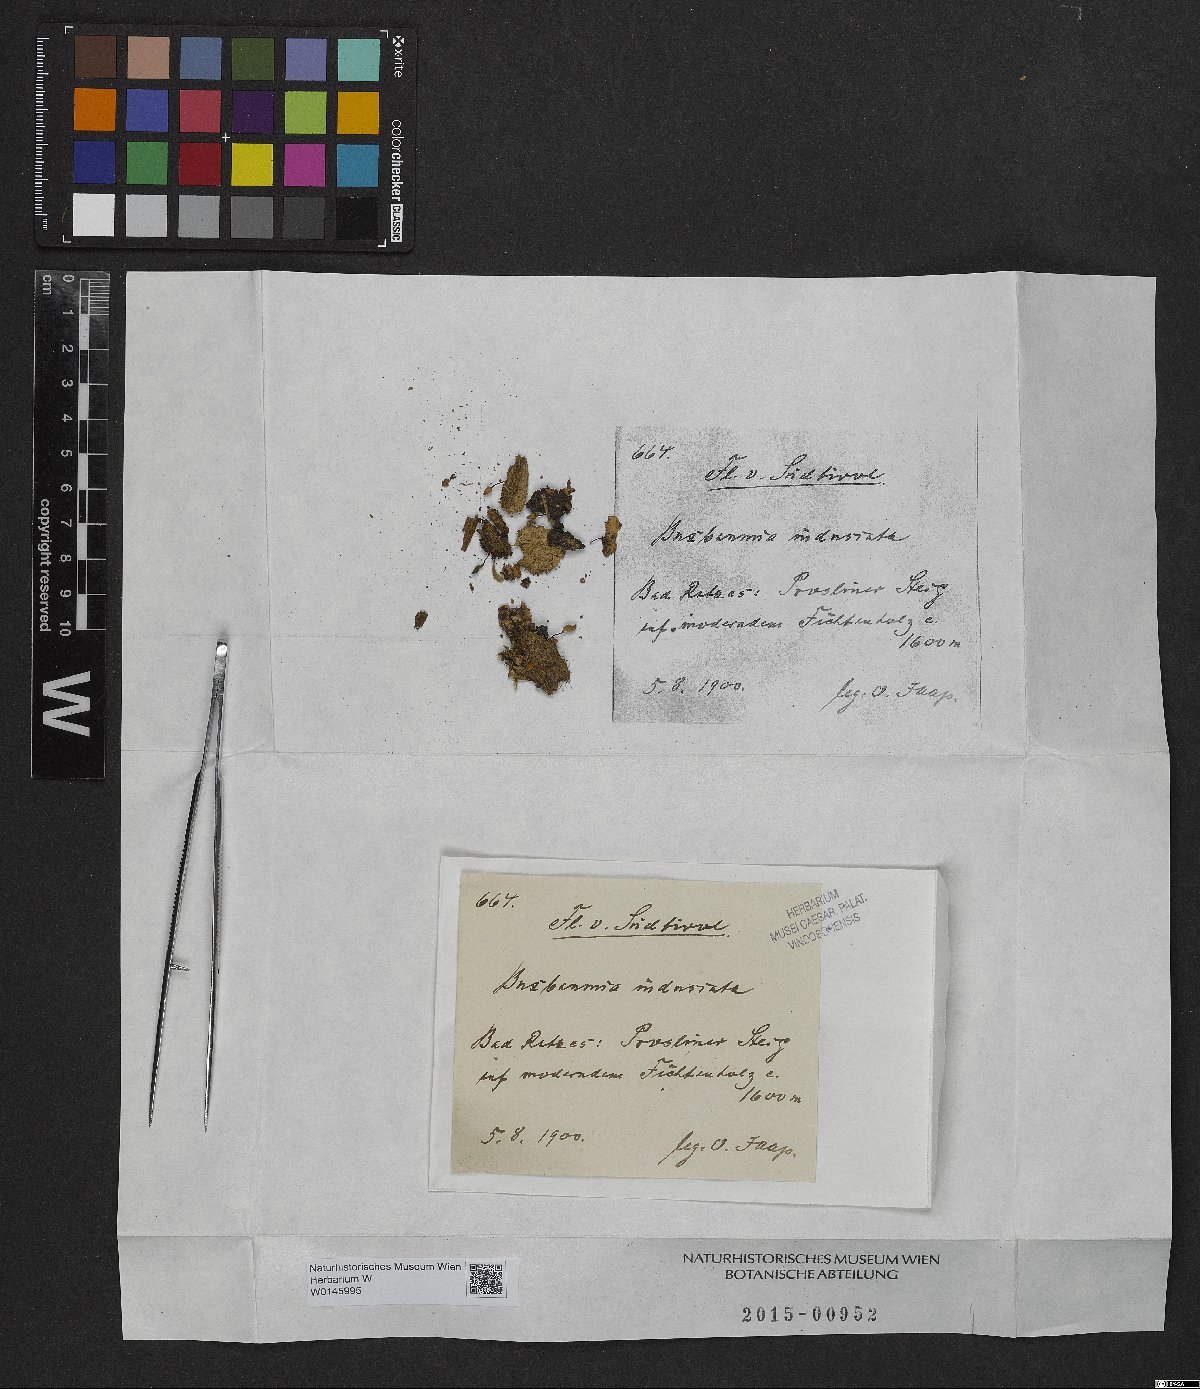 xrite
colorchecker CLASSIC
mm
cm
0 1 2 3 4 5 6 7 8 9 10
copyright reserved
W
664.
Fl. v. Südtirol
Buxbaumia indusiata
Bad Ratzes: Prosliner Steig
auf moderndem Fichtenholz c.
1600 m
5. 8. 1900.
leg. O. Jaap.
664.
Fl. v. Südtirol
HERBARIUM
MUSEI CAESAR. PALAT.
VINDOBONENSIS
Buxbaumia indusiata
Bad Ratzes: Prosliner Steig
auf moderndem Fichtenholz c.
1600 m
5. 8. 1900.
leg. O. Jaap.
Naturhistorisches Museum Wien
Herbarium W
W0145995
NATURHISTORISCHES MUSEUM WIEN
BOTANISCHE ABTEILUNG
2015-00952